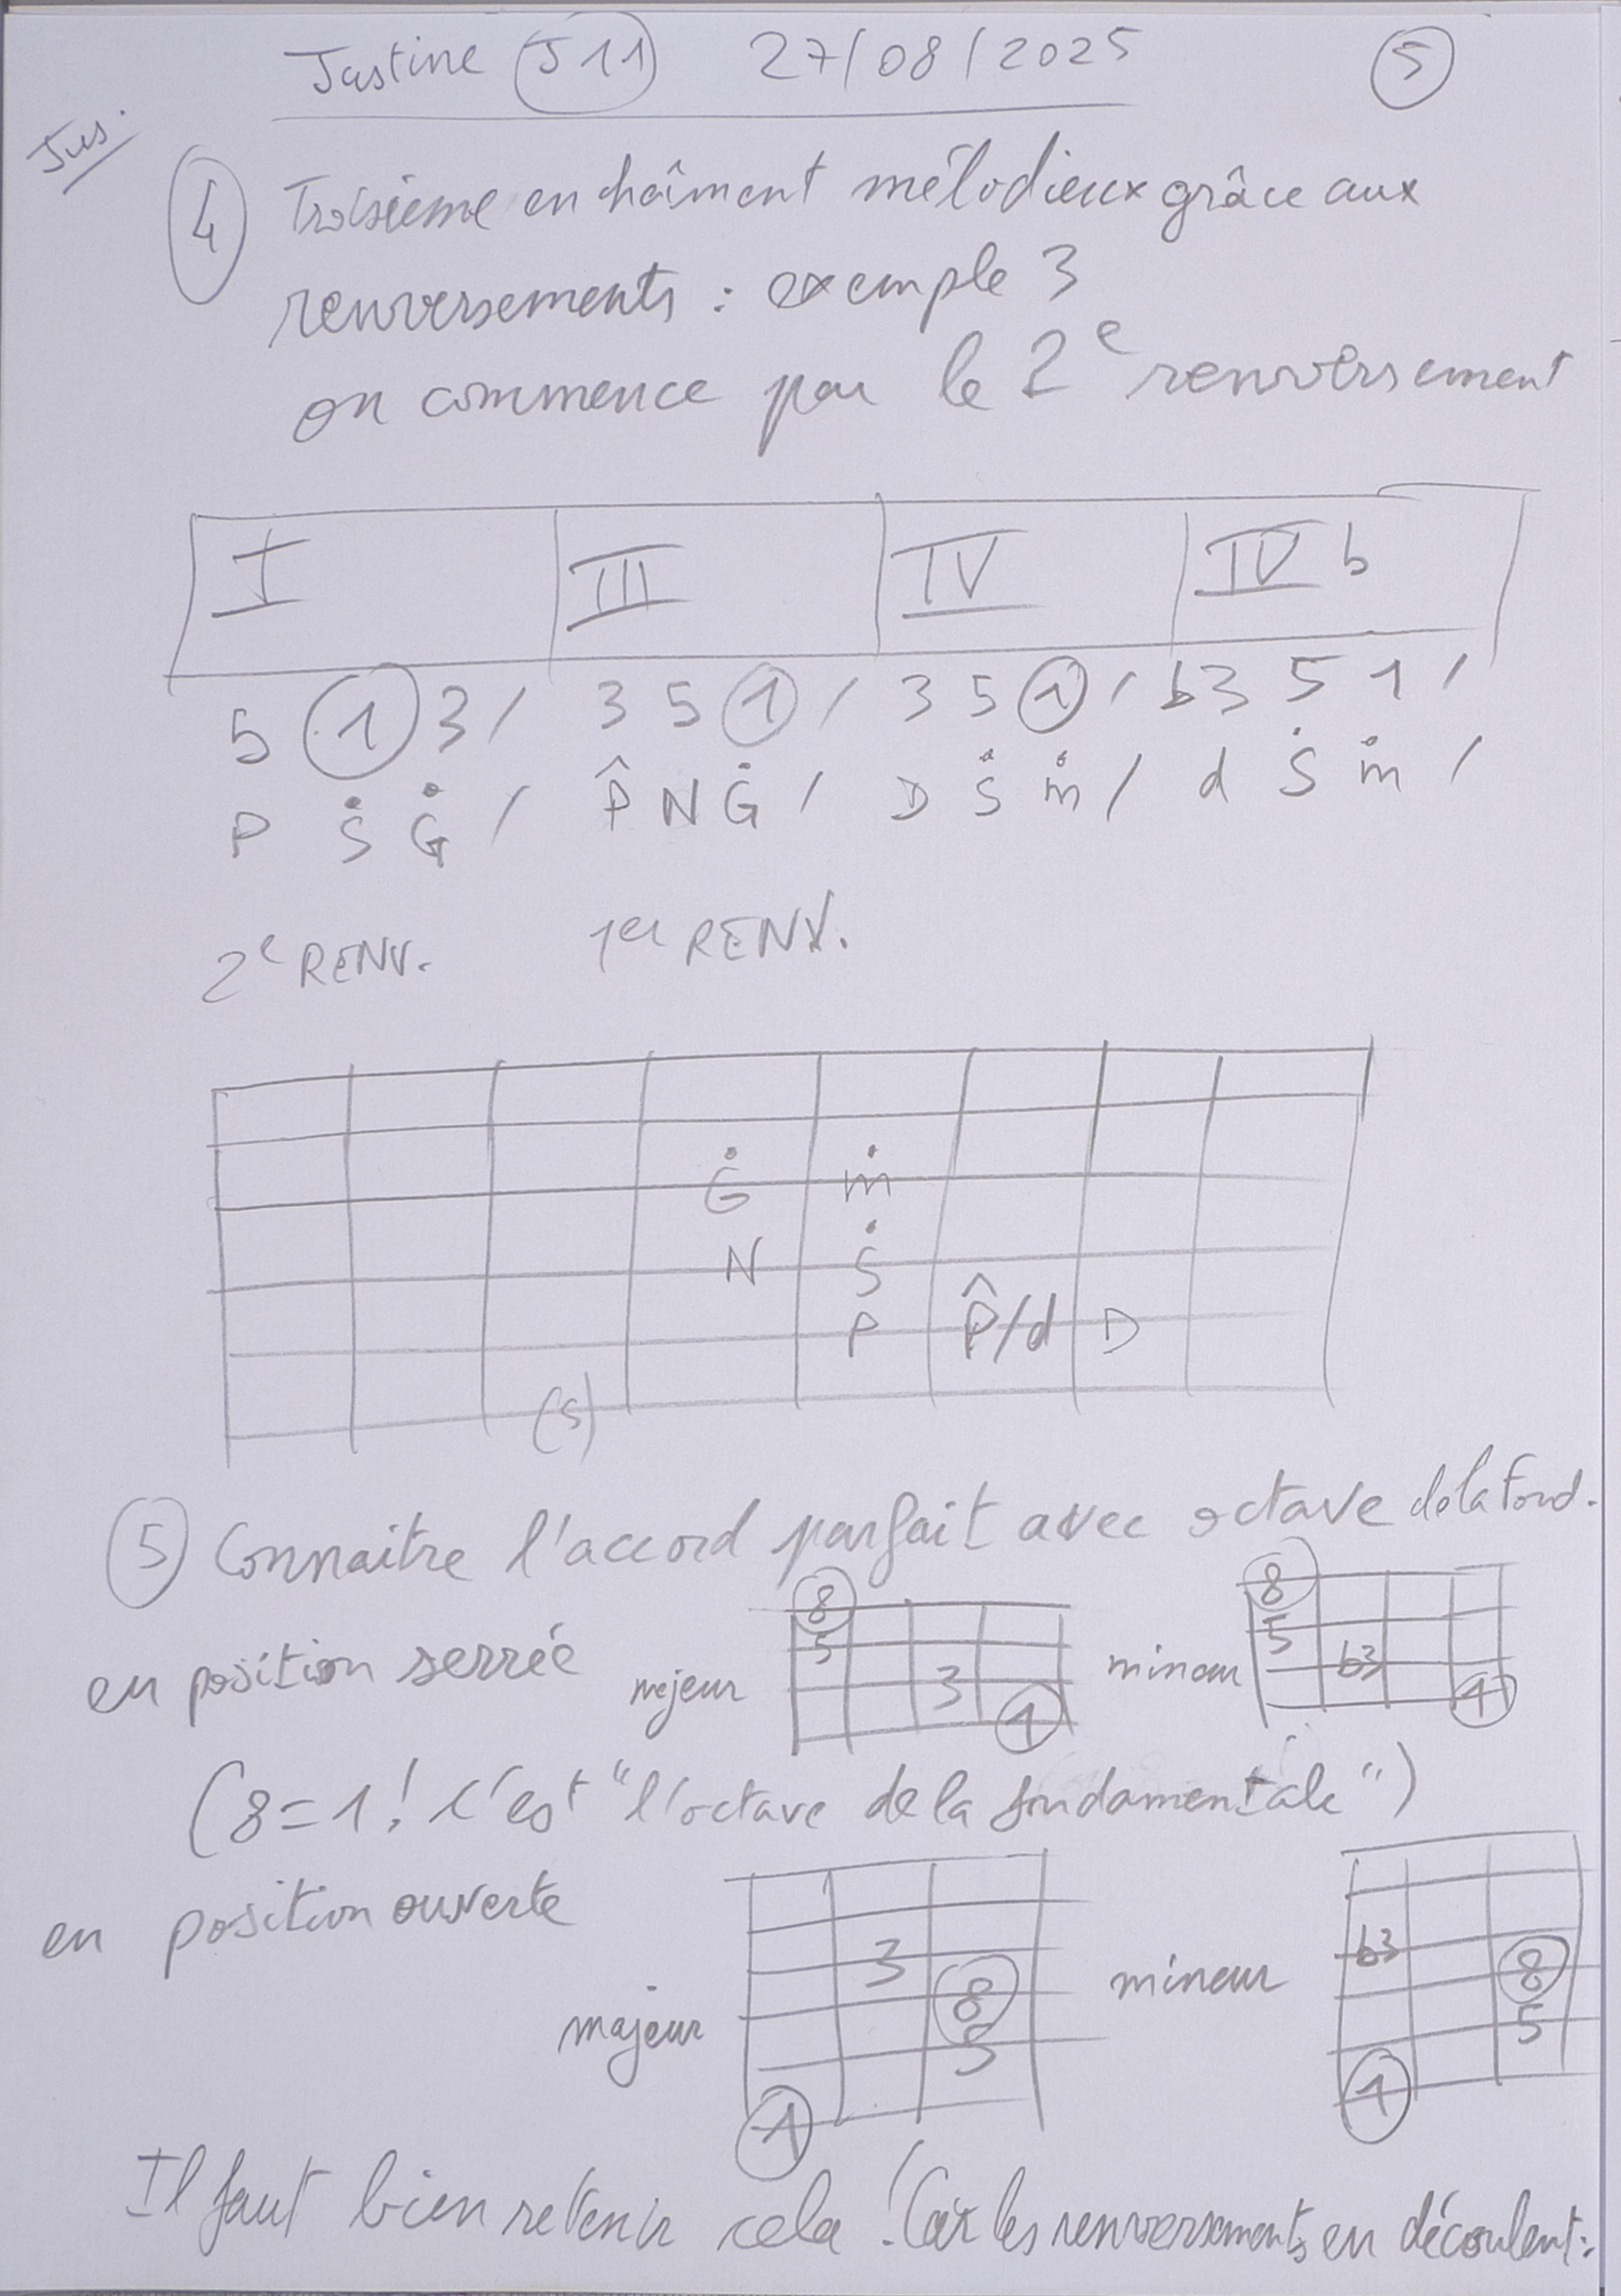 Justine J11 27/08/2025 5
Jus.
4 Troisième enchaîment mélodieux grâce aux
renversements : exemple 3
on commence par le 2e renversement
I III IV IV b
5 1 3 / 3 5 1 / 3 5 1 / b3 5 1 /
P Ṡ Ġ / P̂ N Ġ / D Ṡ ṁ / d Ṡ ṁ /
2e RENV. 1er RENV.
Ġ ṁ
N Ṡ
P P̂/d D
(S)
5 Connaitre l'accord parfait avec octave de la Fond.
en position serrée majeur 8 5 3 1 mineur 8 5 b3 1
(8=1! c'est "l'octave de la fondamentale")
en position ouverte
majeur 3 8 5 1 mineur b3 8 5 1
Il faut bien retenir cela ! Car les renversements en découlent :